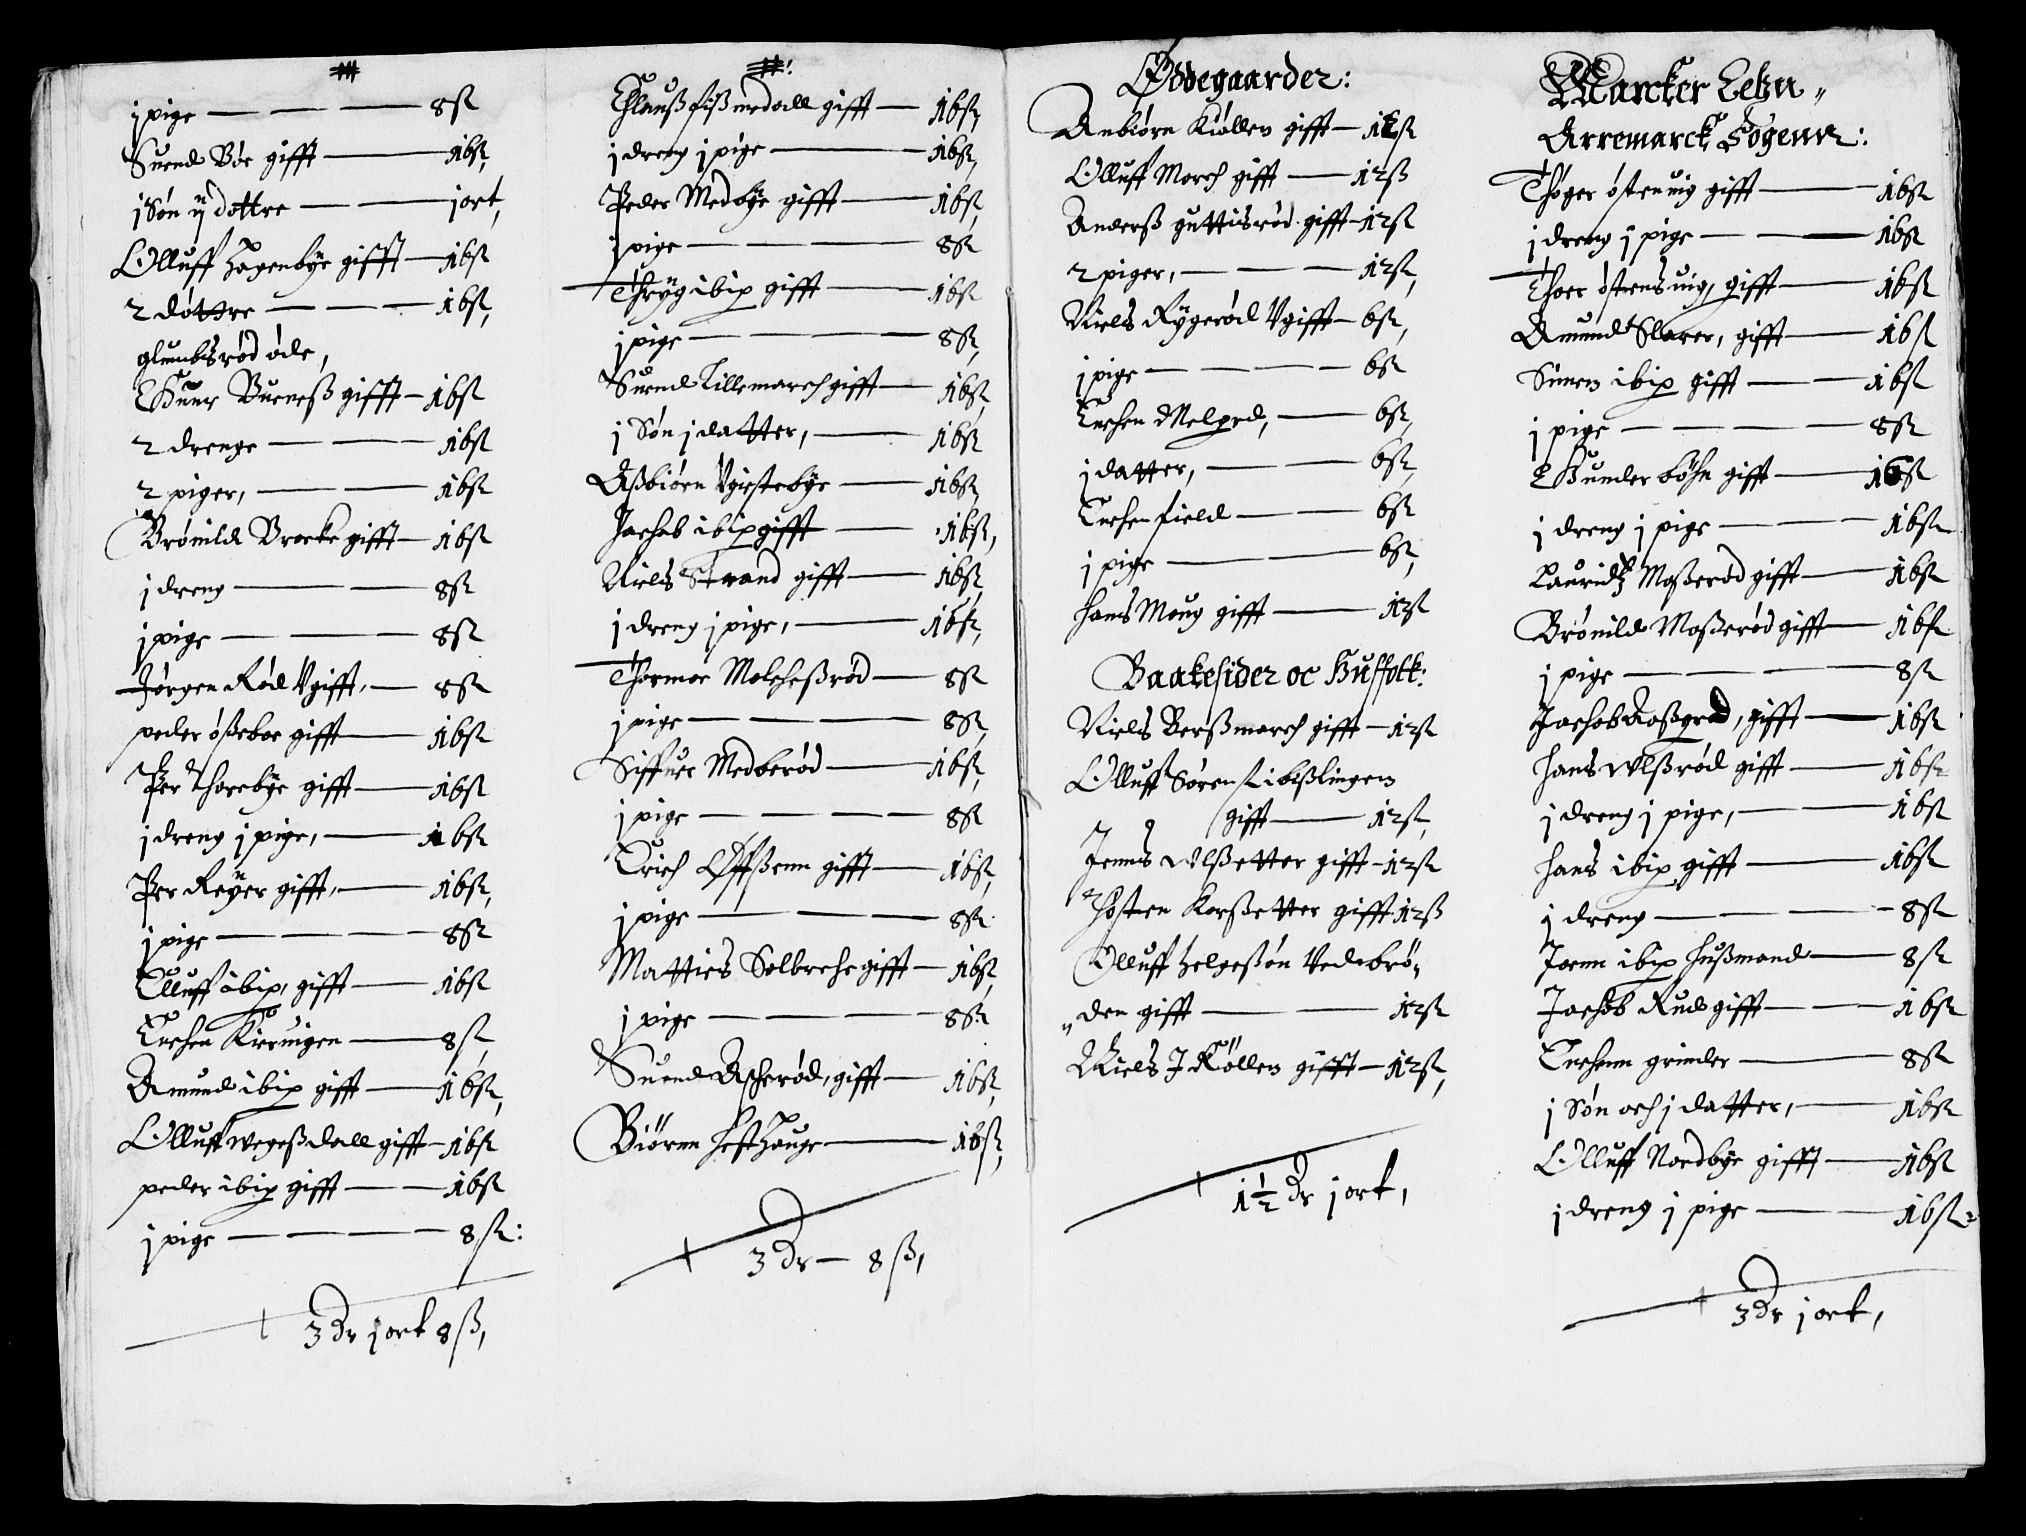 j pige — — — 8 ß
Suend Bøe gifft — 16 ß,
j Søn ij dottre — — jort,
Olluff Hagenbye gifft — 16 ß
2 døttre — — — 16 ß,
glumbsrød øde,
Buenesß gifft — 16 ß
2 drenge — — — 16 ß
2 piger, — — — 16 ß
Brønild Brecke gifft — 16 ß
j dreng — — — 8 ß
j pige — — — 8 ß
Jørgen Rød Vgifft, — 8 ß
peder øßeboe gifft — 16 ß
Per Thorebye gifft — 16 ß
j dreng j pige, — 16 ß
Per Reyer gifft, — 16 ß,
j pige — — — 8 ß
Olluff ibip, gifft — 16 ß
Tuchen Kieruigen — 8 ß
Amund ibip gifft — 16 ß,
Olluff wegeßdall gifft — 16 ß
peder ibip gifft — 16 ß
j pige — — — 8 ß:
3 Dr jort 8 ß,
Clauß fißmedall gifft — 16 ß,
j dreng j pige — 16 ß,
Peder Medbye gifft — 16 ß,
j pige — — — 8 ß
Thryg ibip gifft — 16 ß
j pige — — — 8 ß,
Suend Lillemarch gifft — 16 ß,
j Søn j datter, — 16 ß
Aßbiørn Vgiestebye — 16 ß,
Jachob ibip gifft — 16 ß,
Niels Strand gifft — 16 ß,
j dreng j pige, — 16 ß,
Thormoe Molcheßrød — 8 ß
j pige — — — 8 ß,
Siffuer Medberød — 16 ß,
j pige — — — 8 ß
Erich Øffßenn gifft — 16 ß,
j pige — — — 8 ß
Matties Solbreche gifft — 16 ß,
j pige — — — 8 ß
Suend Ascherød, gifft — 16 ß,
Biørnn Hesthauge — 16 ß,
3 Dr — 8 ß,
Ødegaarder:
Anbiørn Kiøllen gifft — 12 ß
Olluff March gifft — 12 ß
Anderß guttisrød gifft — 12 ß
2 piger, — — — 12 ß,
Niels Rygerød Vgifft — 6 ß,
j pige — — — 6 ß
Tuchen Melgred, — 6 ß,
j datter, — — 6 ß,
Tuchen field — — 6 ß
j pige — — — 6 ß,
Hans Moug gifft — 12 ß
Baakesider oc Huffolk:
Niels Berßmarch gifft — 12 ß
Olluff Sørenß i bißlingen
gifft — 12 ß,
Jenns Wlßetter gifft — 12 ß
Thosten Korßetter gifft 12 ß
Olluff Helgeßøn Vedebrø„
„den gifft — — 12 ß
Niels J Køllen gifft — 12 ß,
1½ Dr jort,
Marcker Lehn„
Arremarck Sogenn:
Thøger østenuig gifft — 16 ß
j dreng j pige — — 16 ß
Thoer østensuig, gifft — 16 ß
Amund Slorer, gifft — 16 ß
Simen ibip gifft — — 16 ß
j pige — — — 8 ß
Gunder bøhn gifft — 16 ß
j dreng j pige — — 16 ß
Lauridtz Moßerød gifft — 16 ß
Brønild Moßerød gifft — 16 ß
j pige — — — 8 ß
Jachob Roßgrad, gifft — 16 ß
Hans Wlßrød gifft — 16 ß
j dreng j pige, — 16 ß
Hans ibip gifft — 16 ß
j dreng — — — 8 ß
Joenn ibip Hußmand — 8 ß
Jachob Rud gifft — 16 ß
Tuchenn grinder — 8 ß
j Søn och j datter, — 16 ß
Olluff Nordbye gifft — 16 ß
j dreng j pige — 16 ß
3 Dr jort,